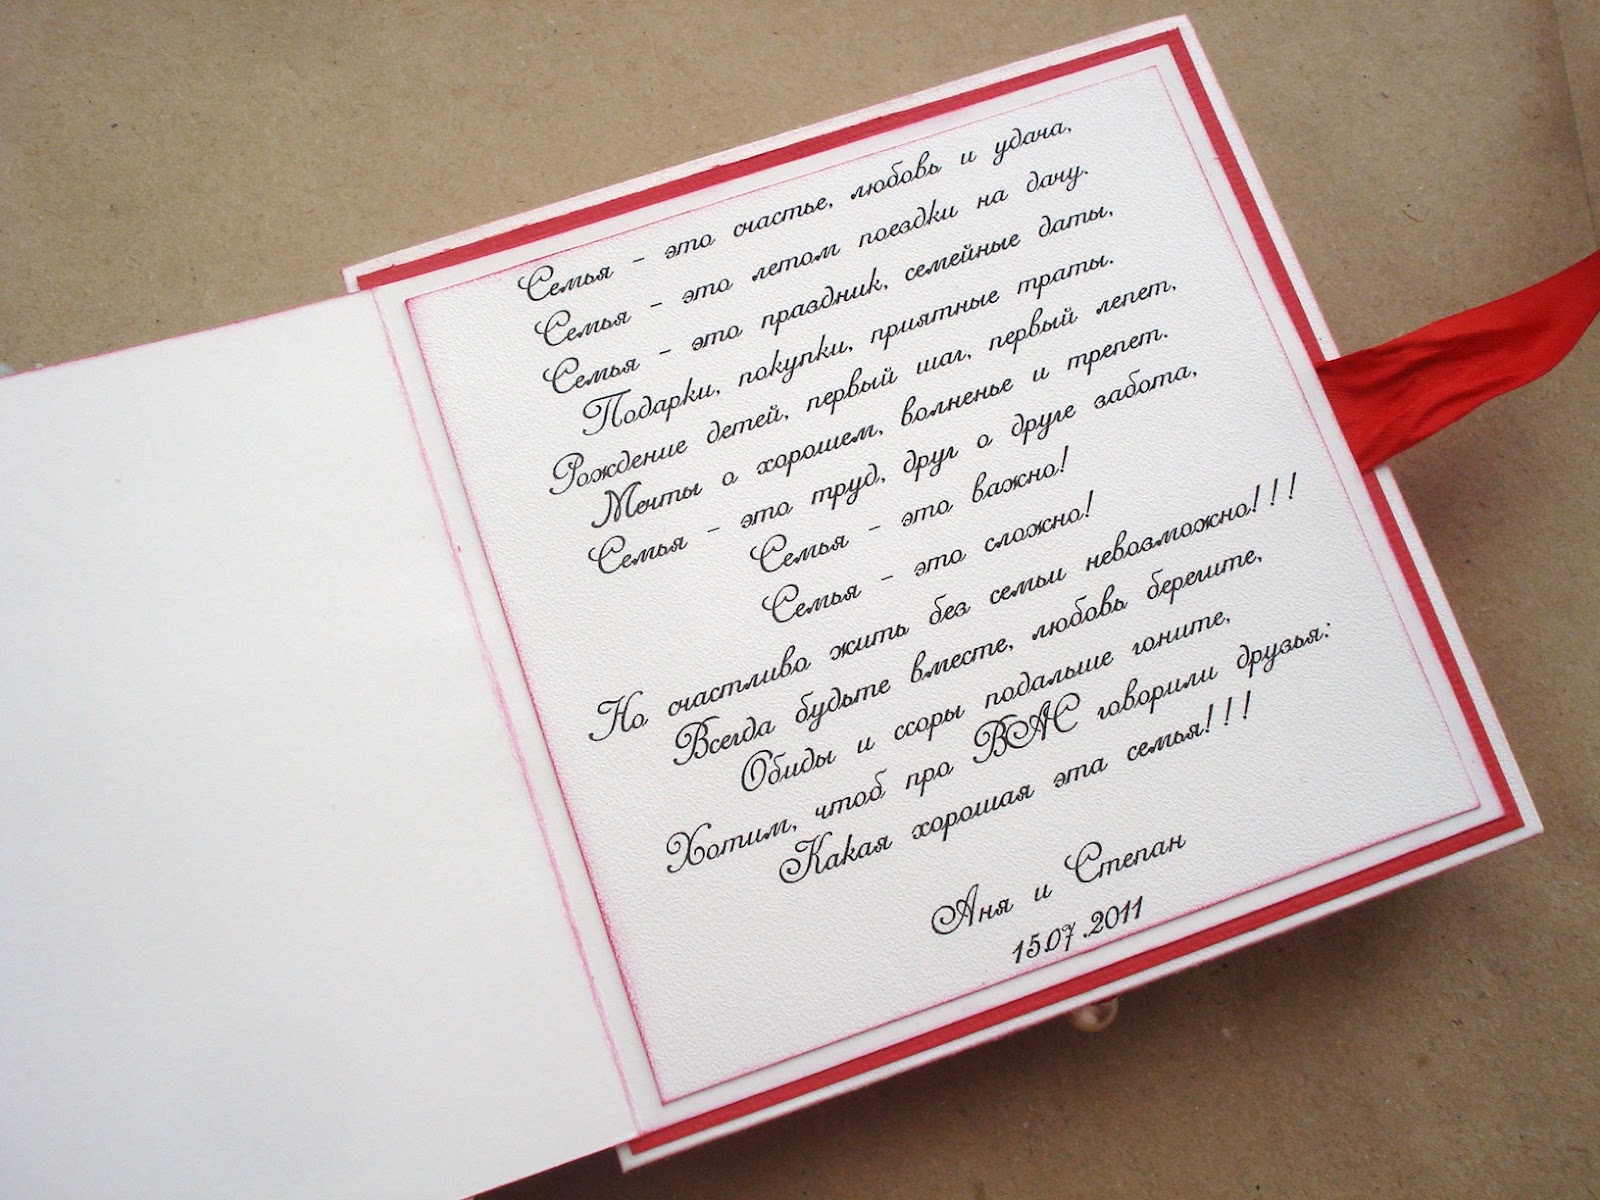 Семья – это счастье, любовь и удача,
Семья – это летом поездки на дачу.
Семья – это праздник, семейные даты,
Подарки, покупки, приятные траты.
Рождение детей, первый шаг, первый лепет,
Мечты о хорошем, волненье и трепет.
Семья – это труд, друг о друге забота,
Семья – это важно!
Семья – это сложно!
Но счастливо жить без семьи невозможно!!!
Всегда будьте вместе, любовь берегите,
Обиды и ссоры подальше гоните,
Хотим, чтоб про ВАС говорили друзья:
Какая хорошая эта семья!!!
Аня и Степан
15.07.2011